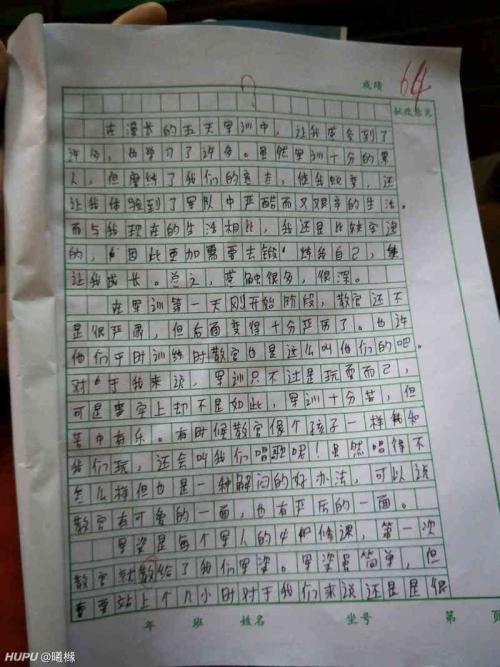 成绩 64
批改意见
在漫长的五天军训中，让我感会到了
许多，也学习了许多。虽然军训十分的累
人，但磨练了我们的意志，使我蜕变，还
让我体验到了军队中严酷而又艰辛的生活。
而与我现在的生活相比，我还是比较幸运
的，因此更加需要去锻炼我自己，
让我成长。总之，感触很多，很深。
在军训第一天刚开始阶段，教官还不
是很严肃，但后面变得十分严厉了。也许
他们平时训练时教官也是这么叫他们的吧。
对于我来说，军训只不过是玩耍而已，
可是事实上却不是如此，军训十分苦，但
苦中有乐。有时候教官像个孩子一样和
我们玩，还会叫我们唱歌呢！虽然唱得不
怎么样但也是一种解闷的好办法，可以说
教官有可爱的一面，也有严厉的一面。
军姿是每个军人的必修课，第一次
教官就教给了我们军姿。军姿虽简单，但
要站上个几小时对于我们来说还是是很
年 班 姓名 坐号 第 页
HUPU @曦橼